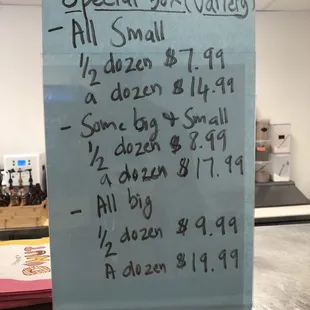 Special Box (Variety)
- All Small
1/2 dozen $7.99
a dozen $14.99
- Some big & Small
1/2 dozen $8.99
a dozen $17.99
- All big
1/2 dozen $9.99
A dozen $19.99